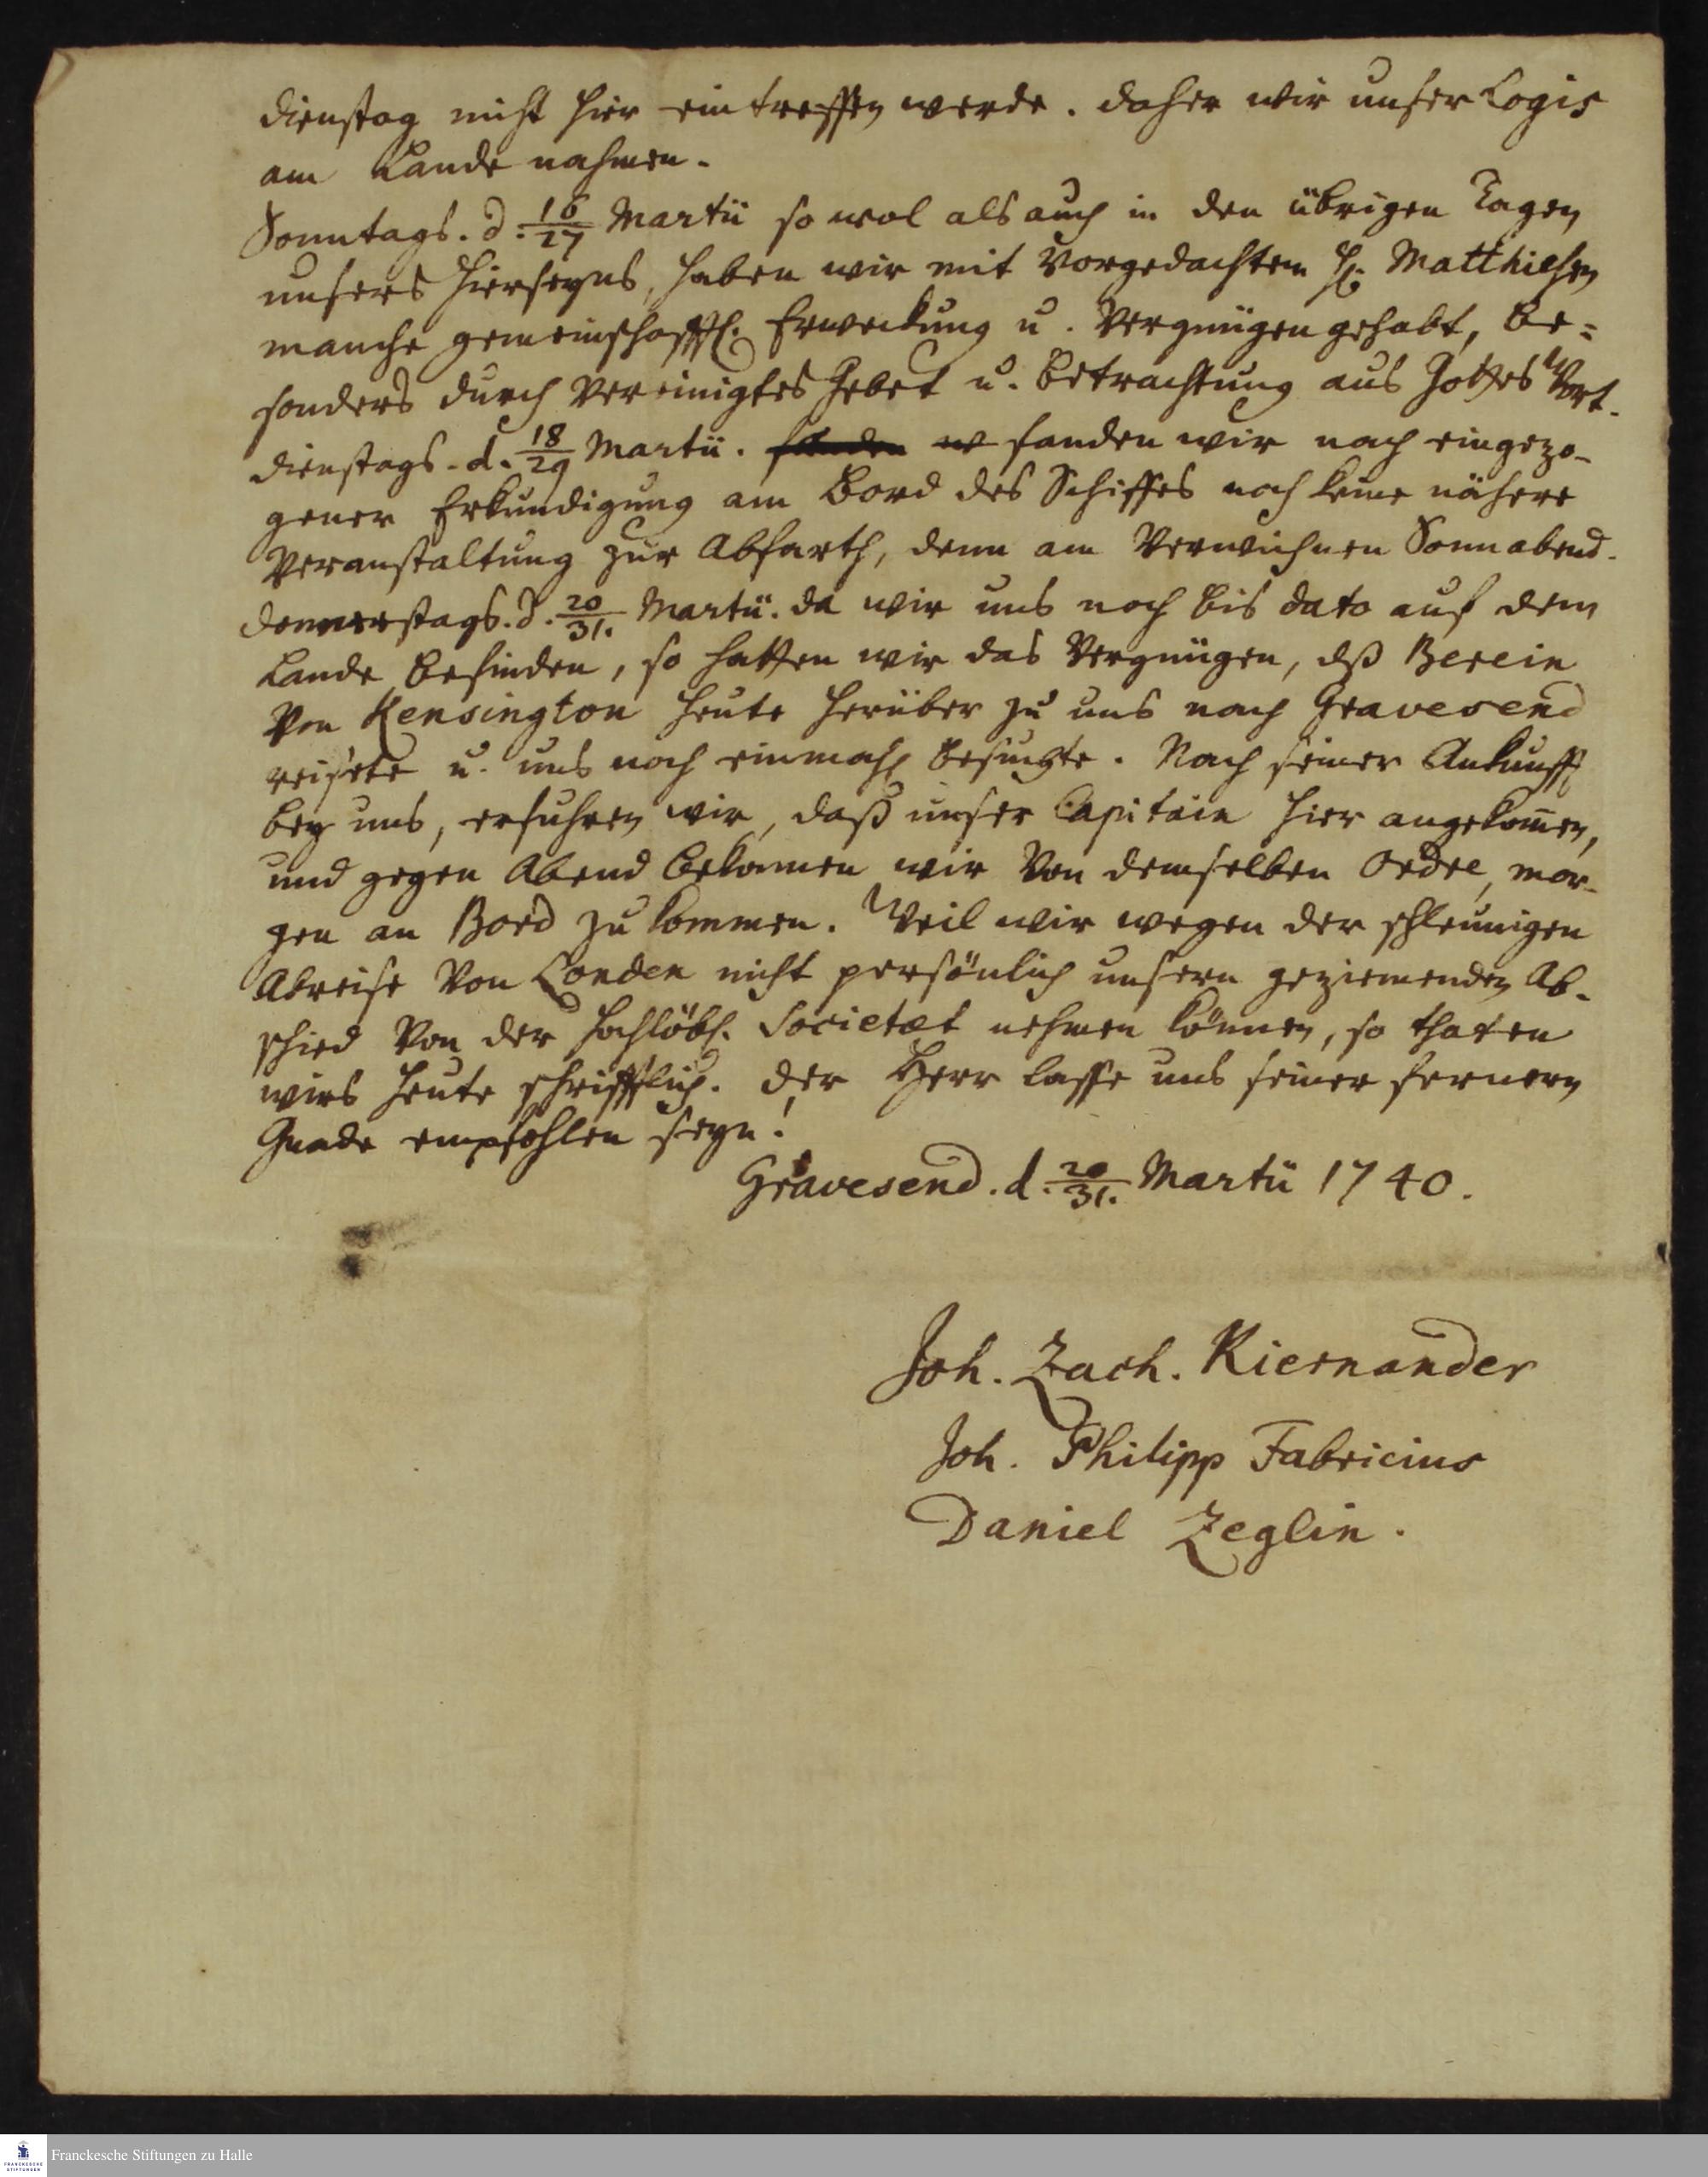 dienstag nicht hier eintreffen werde. daher wir unser Logis
am Lande nahmen.
Sonntags. d. 16/27 Martii so wol als auch in den übrigen Tagen
unsers Hierseyns, haben wir mit vorgedachtem H. Matthiesen
manche gemeinschafftl. Erweckung u. Vergnügen gehabt, be=
sonders durch vereinigtes Gebet u. Betrachtung aus Gottes Wort.
dienstags. d. 18/29 Martii. fanden w fanden wir nach eingezo-
gener Erkundigung am Bord des Schiffes noch keine nähere
Veranstaltung zur Abfarth, denn am verwichnen Sonnabend.
donnerstags. d. 20/31. Martii. da wir uns noch bis dato auf dem
Lande befinden, so hatten wir das Vergnügen, dß Berein
von Kensington heute herüber zu uns nach Gravesend
reisete u. uns noch einmahl besuchte. Nach seiner Ankunfft
bey uns, erfuhren wir, daß unser Capitain hier angekom̄en,
und gegen Abend bekamen wir von demselben Ordre, mor-
gen an Bord zu kommen. Weil wir wegen der schleunigen
Abreise von Londen nicht persönlich unsern geziemenden Ab-
schied von der hochlöbl. Societæt nehmen können, so thaten
wirs heute schrifftlich. der Herr lasse uns seiner fernern
Gnade empfohlen seyn!
Gravesend. d. 20/31. Martii 1740.
Joh. Zach. Kiernander
Joh. Philipp Fabricius
Daniel Zeglin.
Franckesche Stiftungen zu Halle
FRANCKESCHE
STIFTUNGEN